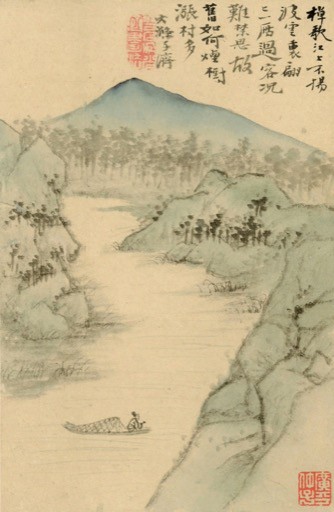 棹歌江上不揚
波雲裏翩
〻一雁過客况
難禁思故
舊如何煙樹
漲村多
大滌子濟